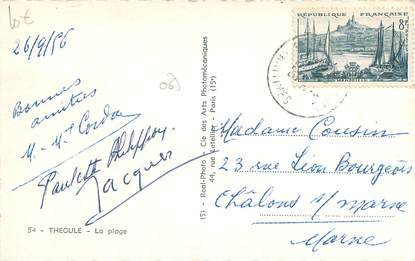 lot
26/9/56
(06)
Bonnes
amitiés
M. - Mt Cordon
Paulette
Jacques
54 - THEOULE - La plage
(S) - Real-Photo - Cie des Arts Photomécaniques
44, rue Letellier - Paris (15e)
REPUBLIQUE FRANÇAISE
8F
Madame Cousin
23 rue Léon Bourgeois
Châlons s/ marne
Marne